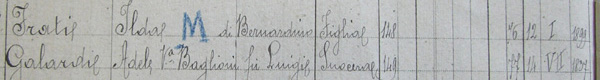 Fratis Ildas M di Bernardino Figlias 148 76 12 I 1899
Galardis Adele Va Baglioni fu Luigis 149 77 14 VII